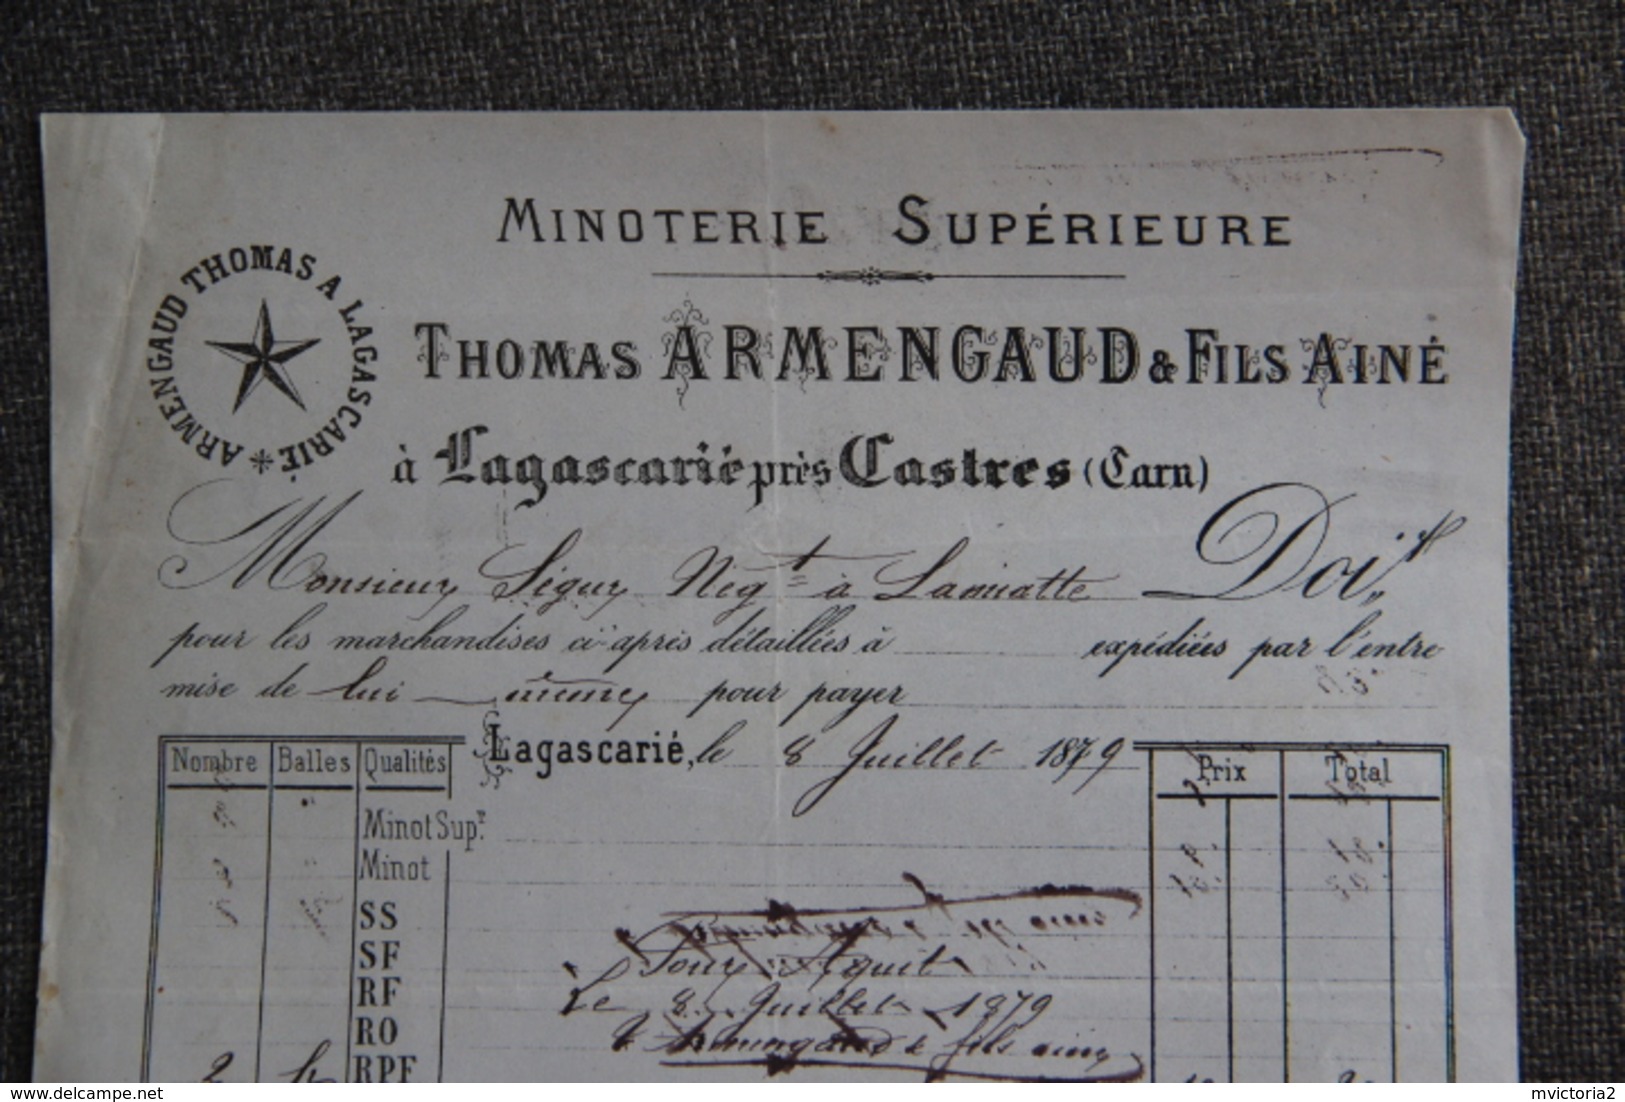 MINOTERIE SUPÉRIEURE
ARMENGAUD THOMAS A LAGASCARIÉ
THOMAS ARMENGAUD & FILS AINÉ
à Lagascarié près Castres (Tarn)
Monsieur Séguy Negt à Lamiatte Doit
pour les marchandises ci-après détaillées à expédiées par l'entre
mise de lui même pour payer
Lagascarié, le 8 Juillet 1879
Nombre Balles Qualités Prix Total
Minot Supr
Minot
SS
SF
Pour Acquit
RF
Le 8 Juillet 1879
RO
T Armengaud & fils ainé
2 RPF
delcampe.net
mvictoria2